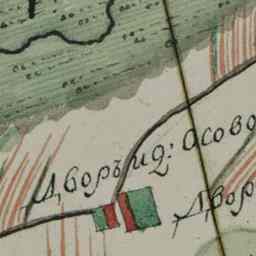 Дворъ иа: Осово
Двор